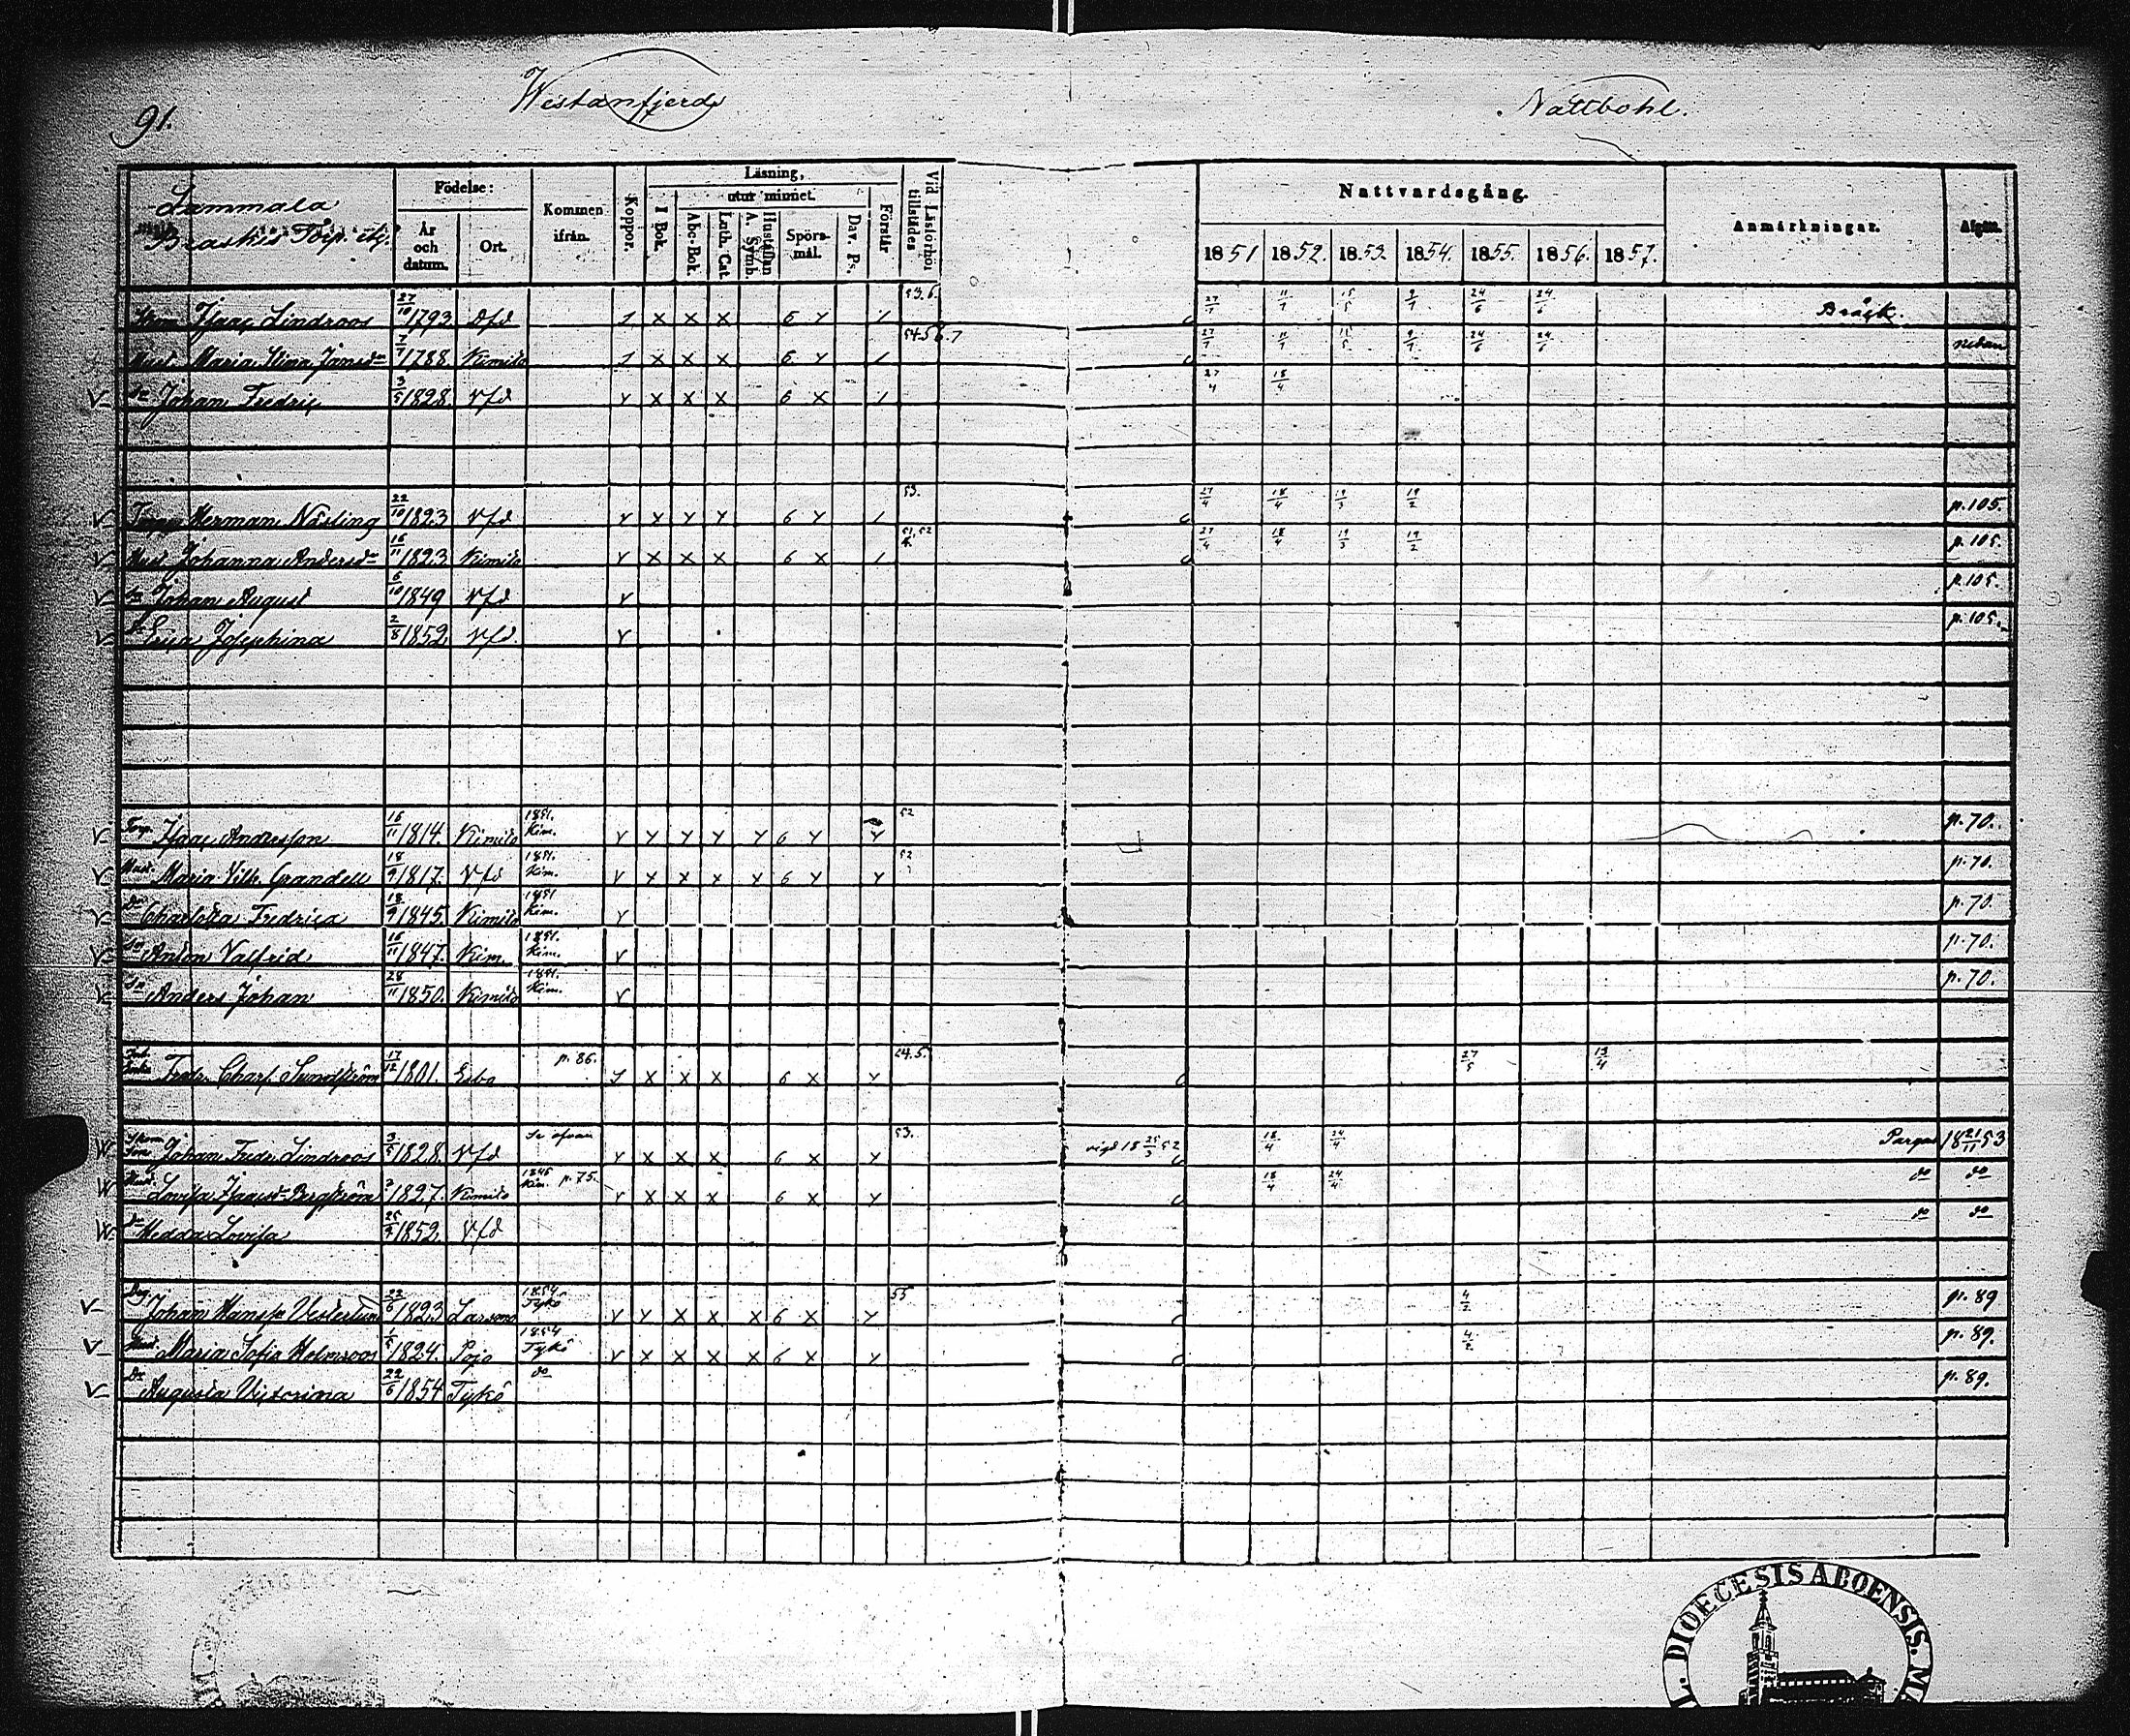 91.
Westanfjerd
Nättbohl.
Lammala
Braskis Torp. etc.
Födelse:
År och datum.
Ort.
Kommen ifrån.
Koppor.
Läsning,
I Bok.
utur minnet.
Abc-Bok.
Luth. Cat.
Hustaflan A. Symb.
Spörs-mål.
Dav. Ps.
Förstår
Vid Läsförhör tillstädes
Nattvardsgång.
1851 1852. 1853. 1854. 1855. 1856. 1857.
Anmärkningar.
Afgått.
Isaac Lindroos 27/10 1793 1 x x x 6 y / 53.6. 27/7 11/7 15/5 9/7 24/6 24/6 Bräck.
Hust. Maria Stina Jansdr 7/7 1788. Kimito 1 x x x 6 y / 54.56.7 27/7 11/7 15/5 9/7 24/6 24/6 nedan
v Sn Johan Fredric 3/5 1828. Vfd y x x x 6 x / 27/4 18/4
v Torp. Herman Nästing 22/10 1823 Vfd y x y y 6 y / 53. 27/4 18/4 19/3 19/2 p.105.
v Hust. Johanna Andersdr 16/11 1823. Kimito y x x x 6 x / 51,52 27/4 18/4 19/3 19/2 p.105.
v Sn Johan August 6/10 1849 Vfd y p.105.
v Dr Erica Josephina 2/8 1852 Vfd. y p.105.
v Torp. Isaac Andersson 16/11 1814. Kimito 1851. Kim. y y y y y 6 y y 52 p.70.
v Hust. Maria Vilh. Grandell 18/9 1817. Vfd 1851. Kim. y x x x x 6 y y 52 p.70.
v dr Charlotta Fredrica 18/9 1845. Kimito 1851 Kim. y p.70.
v Sn Anton Valfrid 16/11 1847. Kim. 1851. Kim. y p.70.
v Sn Anders Johan 28/11 1850. Kimito 1851. Kim. y p.70.
Enka Fredr. Charl. Sundström 17/12 1801. Esbo p. 86. y x x x 6 x y 54.5. 27/5 13/4
w Skom Son Johan Fredr. Lindroos 3/5 1828. Vfd Se ofvan y x x x 6 x y 53. vigd 18 25/3 52 18/4 24/4 Pargas 18 21/11 53
w Hust. Lovisa Isacsdr Bergström 1827. Kimito 1846 Kim. p.75. y x x x 6 x y 18/4 24/4 do do
w dr Hedda Lovisa 25/4 1852. Vfd do do
v Johan Hanss. Vesterlund 22/6 1823 1854 Tykö y y x x x 6 x y 55 4/2 p. 89
v Hust Maria Sofia Helmroos 1/5 1824. Pojo 1854 Tykö y x x x x 6 x y 4/2 p. 89.
v Dr Augusta Victorina 22/6 1854 Tykö do p. 89.
L. DIOECESIS ABOENSIS. MA